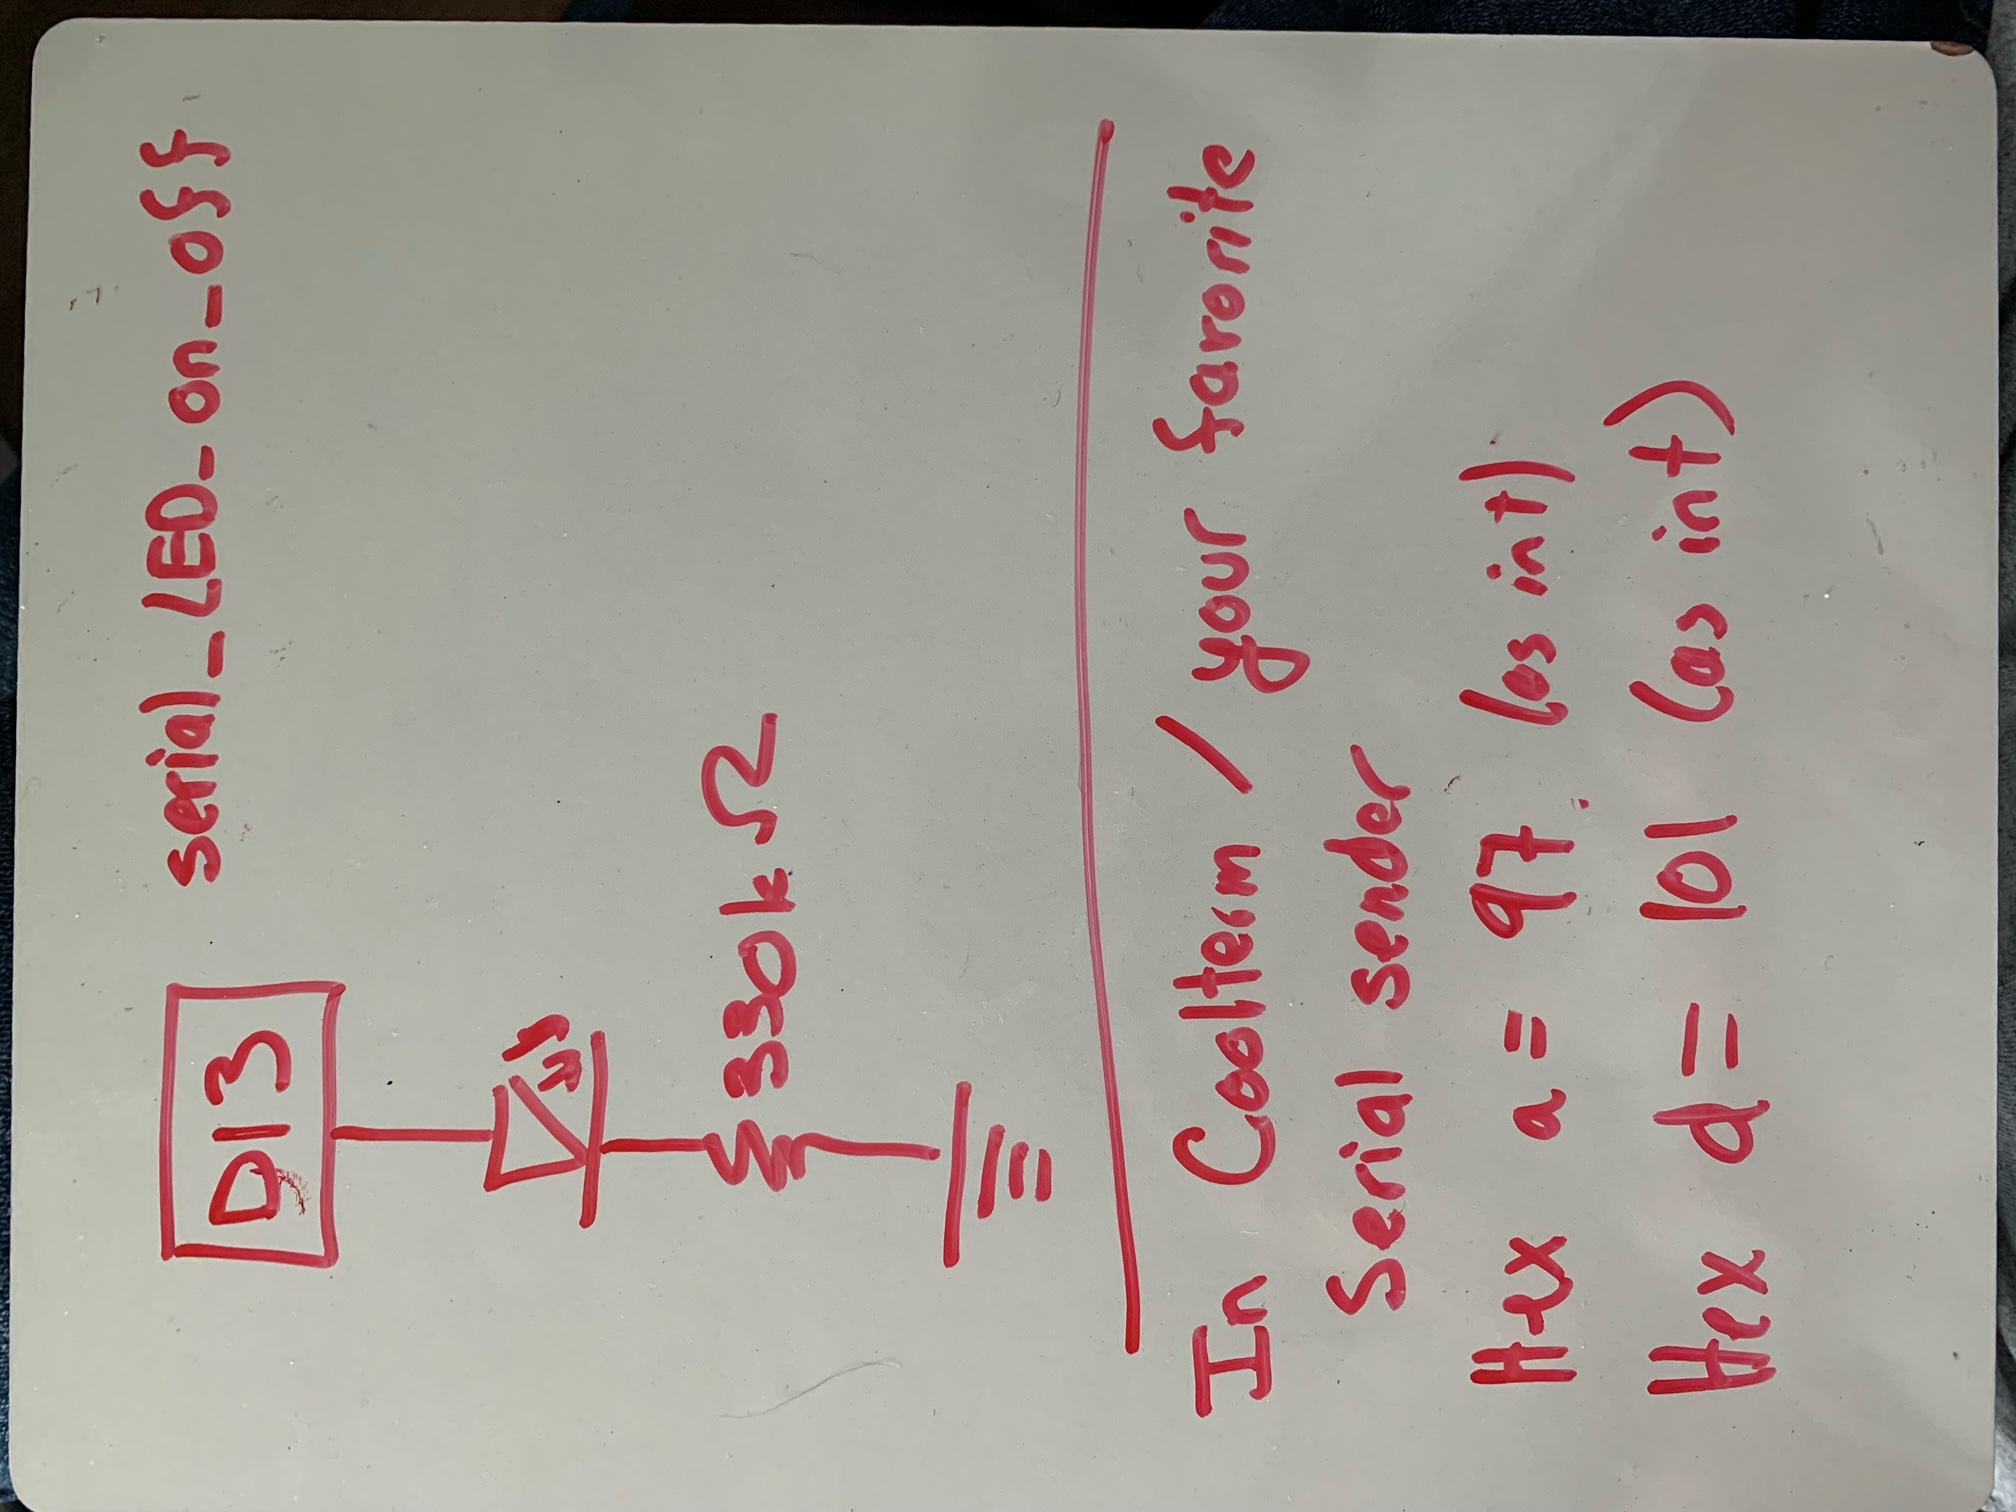 serial_LED_on_off
D13
330k Ω
In Coolterm / your favorite
Serial sender
Hex a = 97 (as int)
Hex d = 101 (as int)